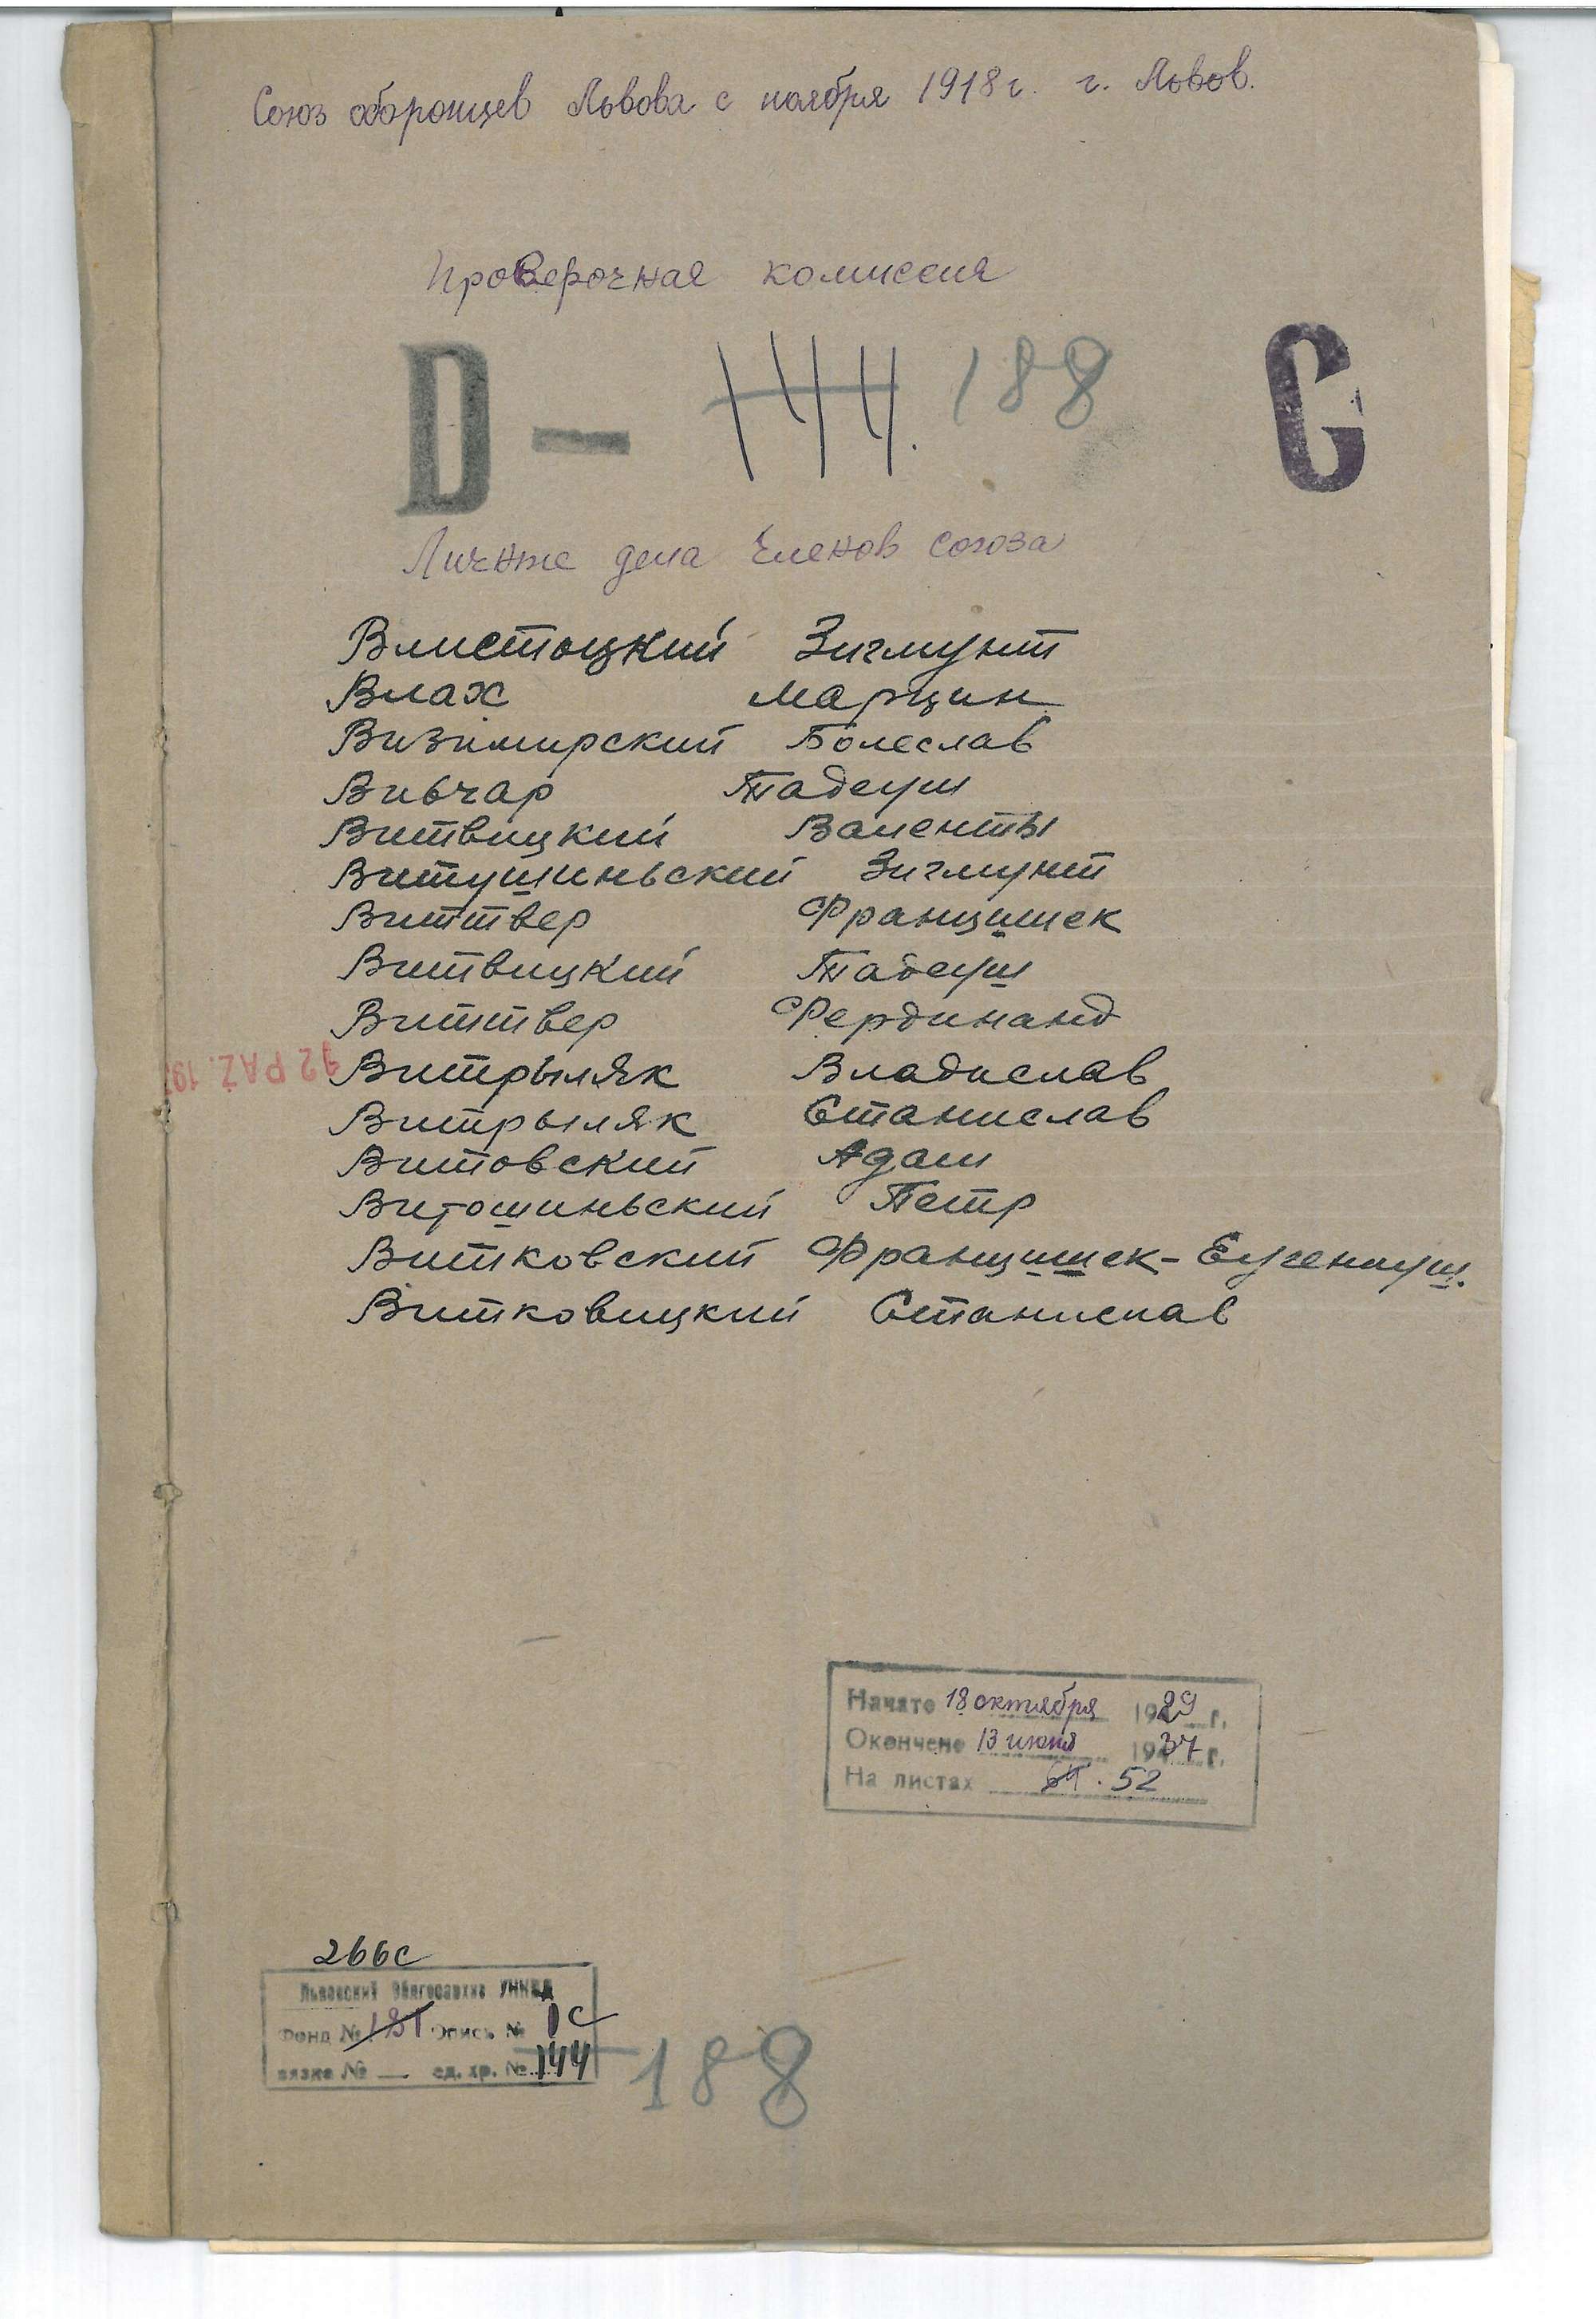 Союз оборонцев Львова с ноября 1918 г. г. Львов.
Проверочная комиссия
D — 144. 188 С
Личные дела членов союза
Влистоцкий Зигмунт
Влах Марцин
Визимирский Болеслав
Вивчар Тадеуш
Витвицкий Валенты
Витушиньский Зигмунт
Виттвер Францишек
Витвицкий Тадеуш
Виттвер Фердинанд
12 PAŹ. 19
Витрыляк Владислав
Витрыляк Станислав
Витовский Адам
Витошиньский Петр
Витковский Францишек-Еугениуш.
Витковицкий Станислав
Начато 18 октября 1929 г.
Окончено 13 июня 1937 г.
На листах 52
266с
Львовский Облгосархив УНКВД
Фонд № 181 Опись № 1с
вязка № — ед. хр. № 144
188